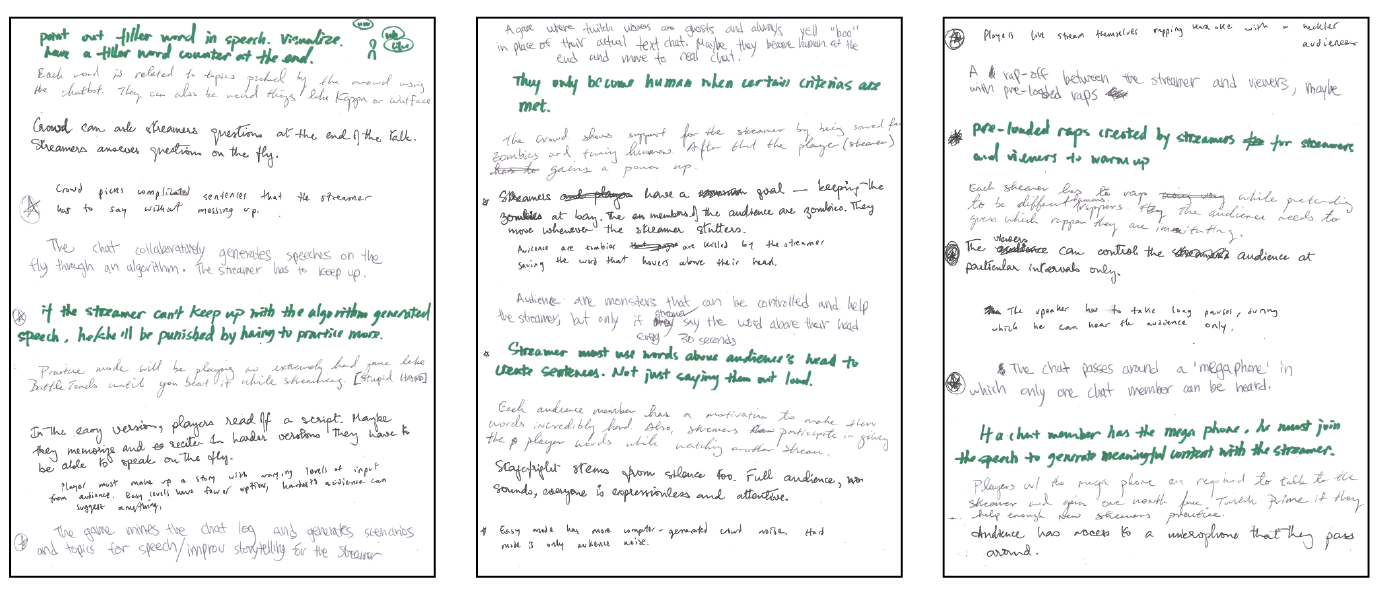 point out filler word in speech. Visualize.
have a filler word counter at the end.
um
uh
Like
Each word is related to topics picked by the crowd using
the chatbot. They can also be weird things like Kappa or
Crowd can ask streamers questions at the end of the talk.
Streamers answer questions on the fly.
Crowd picks complicated sentences that the streamer
has to say without messing up.
The chat collaboratively generates speeches on the
fly through an algorithm. The streamer has to keep up.
if the streamer can't keep up with the algorithm generated
speech, he/she'll be punished by having to practice more.
Practice mode will be playing an extremely hard game like
Battle Toads until you beat it while streaming. [Stupid HARD]
In the easy version, players read off a script. Maybe
they memorize and recite. In harder versions they have to
be able to speak on the fly.
Player must make up a story with varying levels of input
from audience. Easy levels have fewer options, hardest audience can
suggest anything.
The game mines the chat log and generates scenarios
and topics for speech/improv storytelling for the streamer
A game where twitch viewers are ghosts and always yell "boo"
in place of their actual text chat. Maybe they become human at the
end and move to real chat.
They only become human when certain criterias are
met.
The crowd shows support for the streamer by being saved from
zombies and turning humans. After that the player (streamer)
gains a power up.
Streamers have a goal — keeping the
zombies at bay. The members of the audience are zombies. They
move whenever the streamer stutters.
Audience are zombies are killed by the streamer
saying the word that hovers above their head.
Audience are monsters that can be controlled and help
the streamer, but only if streamer say the word above their head
every 30 seconds
Streamer must use words above audience's head to
create sentences. Not just saying them out loud.
Each audience member has a motivation to make their
words incredibly hard. Also, streamers participate in giving
the player words while watching another stream.
Stagefright stems from silence too. Full audience, no
sounds, everyone is expressionless and attentive.
Easy mode has more computer-generated crowd noise. Hard
mode is only audience noise.
Players live stream themselves rapping karaoke with a heckler
audience
A rap-off between the streamer and viewers, maybe
with pre-loaded raps
pre-loaded raps created by streamers for streamers
and viewers to warm up
Each streamer has to rap while pretending
to be different famous rappers. The audience needs to
guess which rapper they are imitating.
The viewers can control the audience at
particular intervals only.
The speaker has to take long pauses, during
which he can hear the audience only.
The chat passes around a 'megaphone' in
which only one chat member can be heard.
If a chat member has the mega phone, he must join
the speech to generate meaningful content with the streamer.
Players w/ the mega phone are required to talk to the
streamer and gain one month free Twitch Prime if they
help enough new streamers practice.
Audience has access to a microphone that they pass
around.